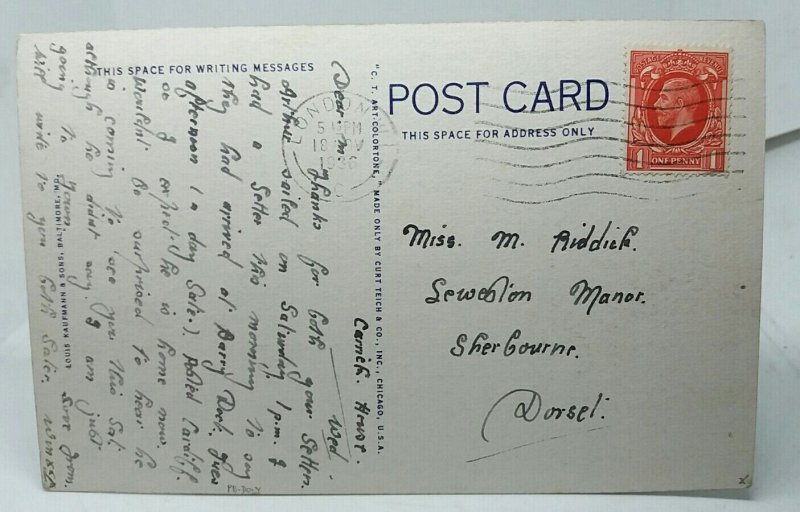 THIS SPACE FOR WRITING MESSAGES
POST CARD
THIS SPACE FOR ADDRESS ONLY
"C. T. ART-COLORTONE," MADE ONLY BY CURT TEICH & CO., INC., CHICAGO, U.S.A.
LOUIS KAUFMANN & SONS, BALTIMORE, MD.
POSTAGE REVENUE
1 ONE PENNY 1
LONDON
18 NOV
1936
Carrick House.
Wed
Dear M. Thanks for both your letters.
Arthur sailed on Saturday 1 p.m. I
had a letter this morning to say
they had arrived at Barry Dock yes
afternoon 1 a day late.) Posted Cardiff.
so I expect he is home now.
Wouldn't be surprised to hear he
is coming to see you this Sat.
although he didn't say. I am just
going to
will write to you both later.
love from
Miss. M. Riddick.
Seweston Manor.
Sherbourne.
Dorset.
PB-DO-Y
x